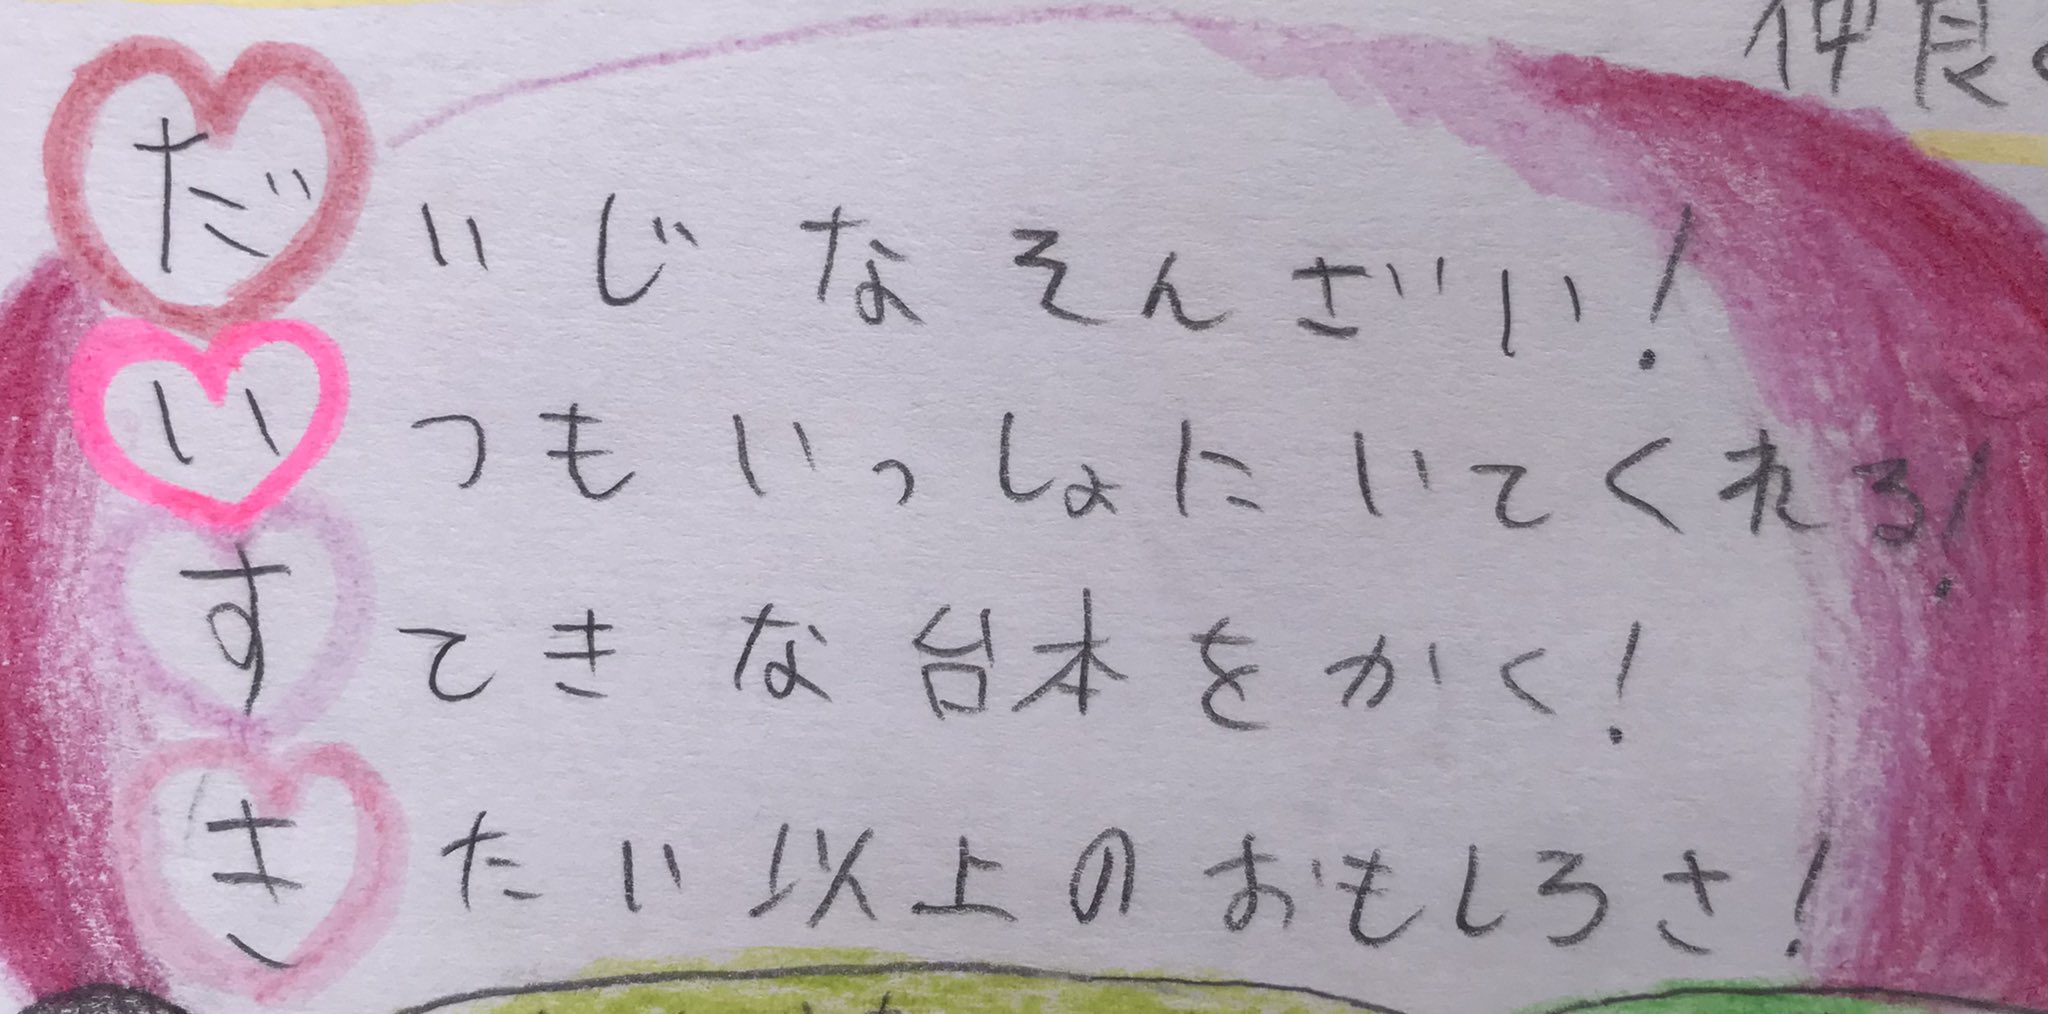 仲良
だいじなそんざい!
いつもいっしょにいてくれる!
すてきな台本をかく!
きたい以上のおもしろさ!